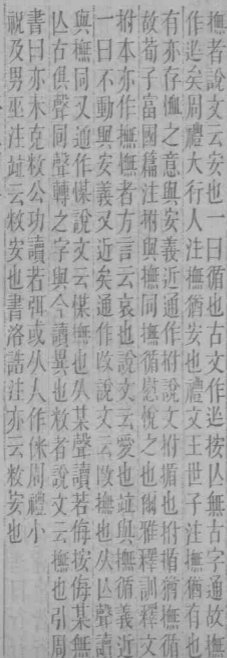 撫者說文云安也一曰循也古文作按亾無古字通故撫
作矣周禮大行人注撫猶安也禮文王世子注撫猶有也
有亦存恤之意與安義近通作拊說文拊揗也拊循猶撫循
故荀子富國篇注拊與撫同撫循慰悅之也爾雅釋訓釋文
拊本亦作撫憮者方言云哀也說文云愛也竝與撫循義近
一曰不動與安義又近矣通作說文云撫也从亾聲讀
與撫同又通作說文云撫也从某聲讀若侮按侮某無
亾右俱聲同聲轉之字與今讀異也敉者說文云撫也引周
書曰亦未克敉公功讀若弭或从人作侎周禮小
祝及男巫注竝云敉安也書洛誥注亦云敉安也